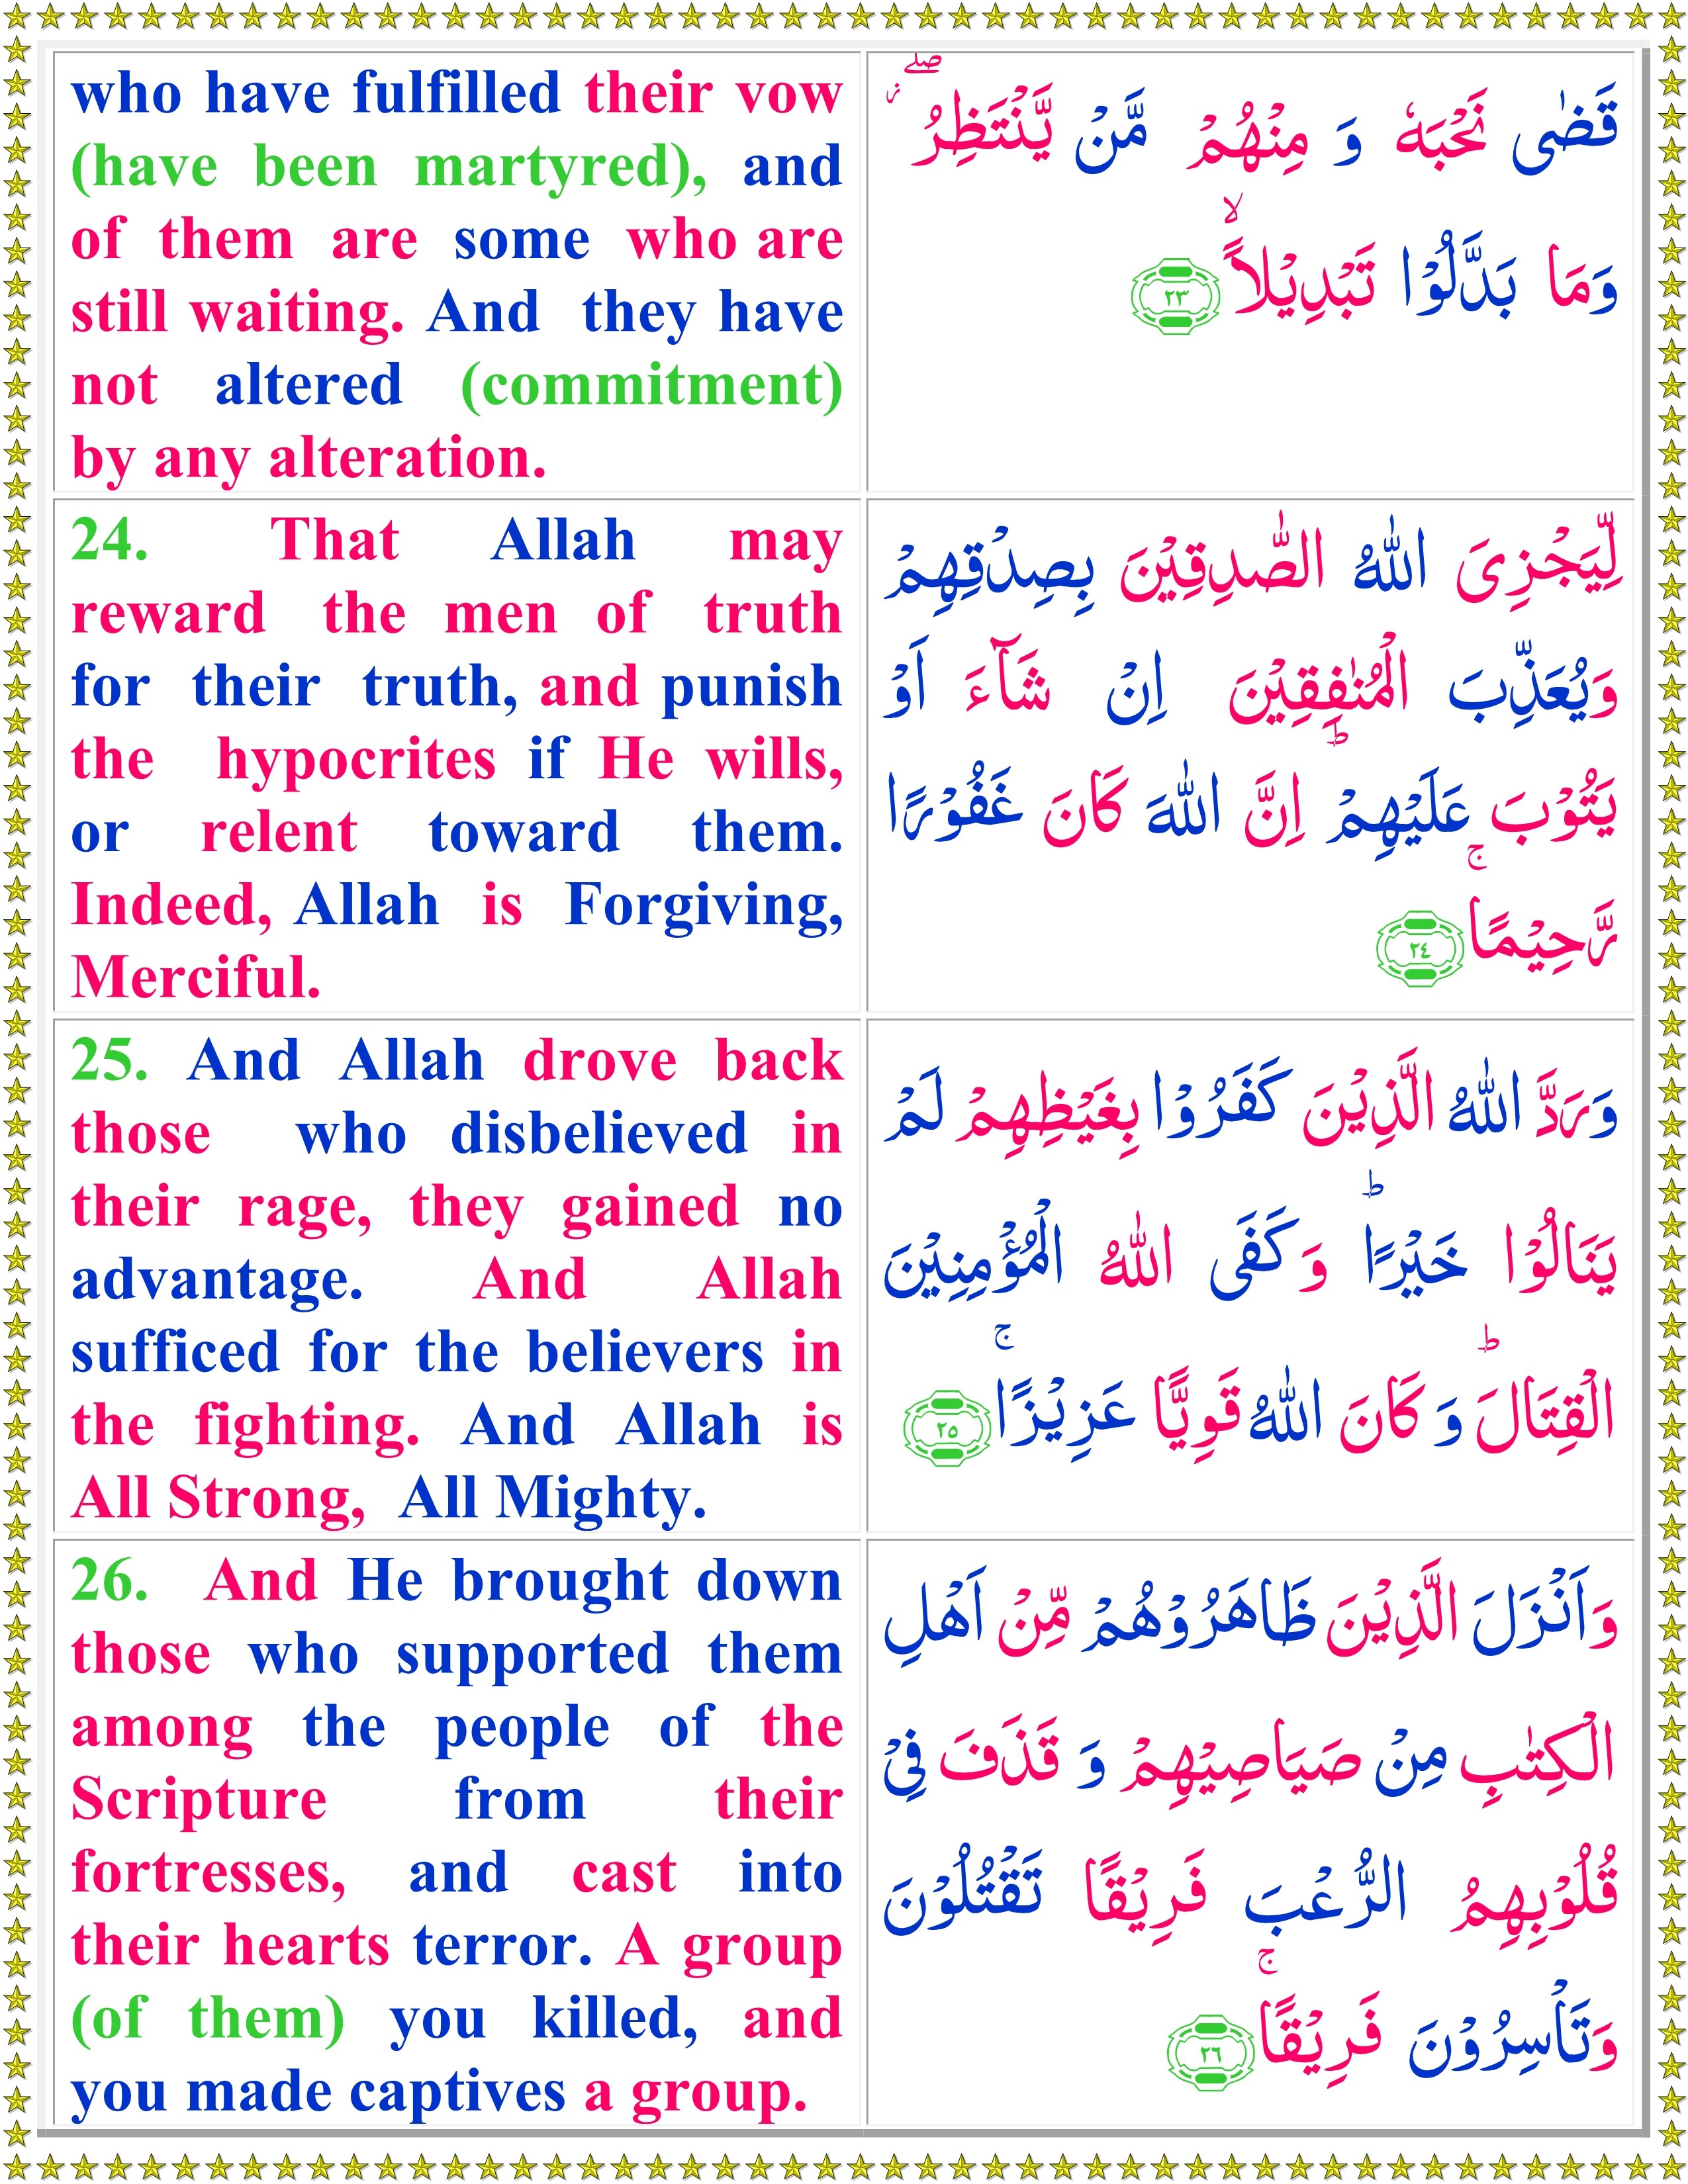 who have fulfilled their vow
(have been martyred), and
of them are some who are
still waiting. And they have
not altered (commitment)
by any alteration.
قَضٰى نَحْبَهٗ وَ مِنْهُمْ مَّنْ يَّنْتَظِرُ ۖ ز
وَمَا بَدَّلُوْا تَبْدِيْلًا ۙ ٢٣
24. That Allah may
reward the men of truth
for their truth, and punish
the hypocrites if He wills,
or relent toward them.
Indeed, Allah is Forgiving,
Merciful.
لِّيَجْزِىَ اللّٰهُ الصّٰدِقِيْنَ بِصِدْقِهِمْ
وَيُعَذِّبَ الْمُنٰفِقِيْنَ اِنْ شَآءَ اَوْ
يَتُوْبَ عَلَيْهِمْ ؕ اِنَّ اللّٰهَ كَانَ غَفُوْرًا
رَّحِيْمًا ۚ ٢٤
25. And Allah drove back
those who disbelieved in
their rage, they gained no
advantage. And Allah
sufficed for the believers in
the fighting. And Allah is
All Strong, All Mighty.
وَرَدَّ اللّٰهُ الَّذِيْنَ كَفَرُوْا بِغَيْظِهِمْ لَمْ
يَنَالُوْا خَيْرًا ؕ وَكَفَى اللّٰهُ الْمُؤْمِنِيْنَ
الْقِتَالَ ؕ وَ كَانَ اللّٰهُ قَوِيًّا عَزِيْزًا ۚ ٢٥
26. And He brought down
those who supported them
among the people of the
Scripture from their
fortresses, and cast into
their hearts terror. A group
(of them) you killed, and
you made captives a group.
وَاَنْزَلَ الَّذِيْنَ ظَاهَرُوْهُمْ مِّنْ اَهْلِ
الْكِتٰبِ مِنْ صَيَاصِيْهِمْ وَ قَذَفَ فِىْ
قُلُوْبِهِمُ الرُّعْبَ فَرِيْقًا تَقْتُلُوْنَ
وَتَاْسِرُوْنَ فَرِيْقًا ۚ ٢٦